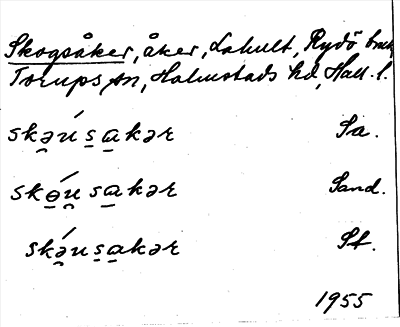 Skogsåker, åker, Lahult, Rydö bruk,
Torups sn, Halmstads hd, Hall. l.
skə̯úsa̠kər Sa.
skɵ̠ú̯sa̠kər Sand.
skə̯úsa̠kər St.
1955